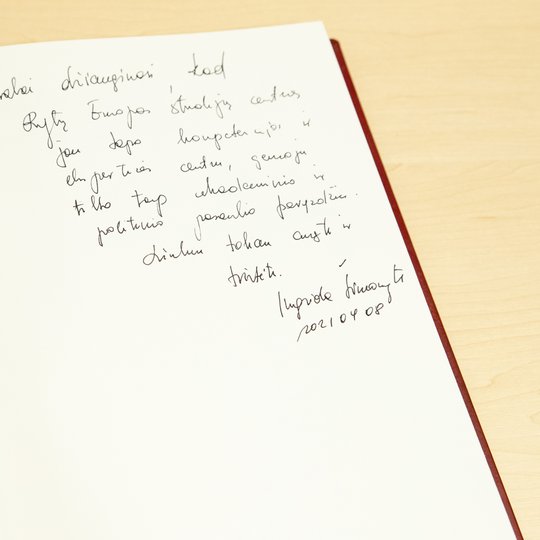 džiaugiuosi kad
Rytų Europos studijų centras
jau tapo kompetencijos ir
ekspertinės centru, geruoju
tilto tarp akademinio ir
politinio pasaulio pavyzdžiu.
Linkiu toliau augti ir
tvirtėti.
Ingrida Šimonytė
2021 04 08